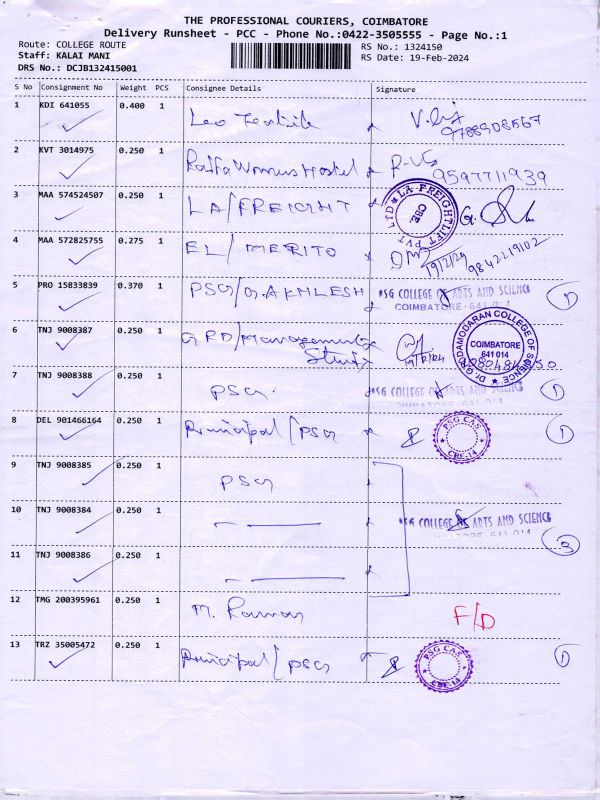 THE PROFESSIONAL COURIERS, COIMBATORE
Delivery Runsheet - PCC - Phone No.:0422-3505555 - Page No.:1
Route: COLLEGE ROUTE
Staff: KALAI MANI
DRS No.: DCJB132415001
RS No.: 1324150
RS Date: 19-Feb-2024
S No Consignment No Weight PCS Consignee Details Signature
1 KDI 641055 0.400 1 Leo Textile
9788908567
2 KVT 3014975 0.250 1 Womens Hostel
9597711939
3 MAA 574524507 0.250 1 LA/FREIGHT
LA-FREIGHTLIFT PVT LTD CBE.
4 MAA 572825755 0.275 1 EL/MERITO
19/2/24 9842219102
5 PRO 15833839 0.370 1 PSG/G.AKHLESH
PSG COLLEGE OF ARTS AND SCIENCE
COIMBATORE-641 014 1
6 TNJ 9008387 0.250 1 GRD/Management
Dr. G.R. DAMODARAN COLLEGE OF SCIENCE
COIMBATORE
641 014
7 TNJ 9008388 0.250 1 PSG
PSG COLLEGE ARTS AND SCIENCE
COIMBATORE-641 014 1
8 DEL 901466164 0.250 1 Principal/PSG
PSG CAS CBE-14 1
9 TNJ 9008385 0.250 1 PSG
10 TNJ 9008384 0.250 1
PSG COLLEGE ARTS AND SCIENCE
641 014 3
11 TNJ 9008386 0.250 1
12 TMG 200395961 0.250 1 M. Raman F/D
13 TRZ 35005472 0.250 1 Principal/PSG
PSG CAS CBE-14 1